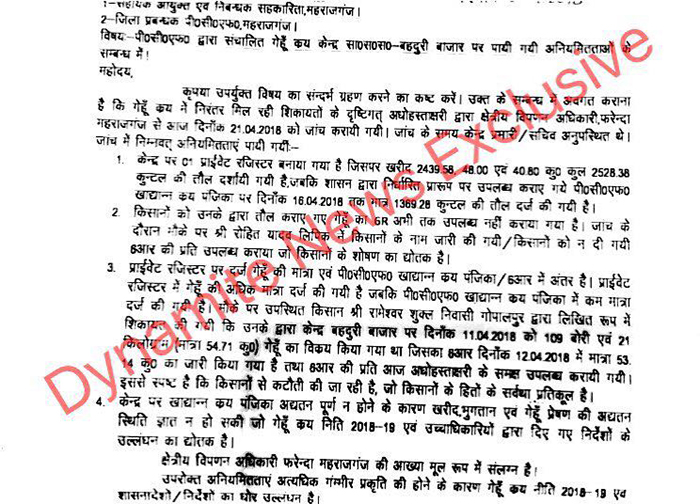 1-सहायक आयुक्त एवं निबन्धक सहकारिता,महराजगंज।
2-जिला प्रबन्धक पी०सी०एफ०,महराजगंज।
विषयः-पी०सी०एफ० द्वारा संचालित गेहूँ क्रय केन्द्र सा०स०स०-बहदुरी बाजार पर पायी गयी अनियमितताओं के
सम्बन्ध में।
महोदय,
कृपया उपर्युक्त विषय का संदर्भ ग्रहण करने का कष्ट करें। उक्त के सम्बन्ध में अवगत कराना
है कि गेहूँ क्रय में निरंतर मिल रही शिकायतों के दृष्टिगत अधोहस्ताक्षरी द्वारा क्षेत्रीय विपणन अधिकारी,फरेन्दा
महराजगंज से आज दिनाँक 21.04.2018 को जांच करायी गयी। जांच के समय केन्द्र प्रभारी/सचिव अनुपस्थित थे।
जांच में निम्नवत् अनियमितताएं पायी गयीः-
1. केन्द्र पर 01 प्राईवेट रजिस्टर बनाया गया है जिसपर खरीद 2439.58, 48.00 एवं 40.80 कु० कुल 2528.38
कुन्टल की तौल दर्शायी गयी है,जबकि शासन द्वारा निर्धारित प्रारूप पर उपलब्ध कराए गये पी०सी०एफ०
खाद्यान्न क्रय पंजिका पर दिनाँक 16.04.2018 तक मात्र 1369.28 कुन्टल की तौल दर्ज की गयी है।
2. किसानों को उनके द्वारा तौल कराए गए गेहूँ का 6R अभी तक उपलब्ध नहीं कराया गया है। जांच के
दौरान मौके पर श्री रोहित यादव लिपिक नें किसानों के नाम जारी की गयी/किसानों को न दी गयी
6आर की प्रति उपलब्ध कराया जो किसानों के शोषण का द्योतक है।
3. प्राईवेट रजिस्टर पर दर्ज गेहूँ की मात्रा एवं पी०सी०एफ० खाद्यान्न क्रय पंजिका/6आर में अंतर है। प्राईवेट
रजिस्टर में गेहूँ की अधिक मात्रा दर्ज की गयी है जबकि पी०सी०एफ० खाद्यान्न क्रय पंजिका में कम मात्रा
दर्ज की गयी है। मौके पर उपस्थित किसान श्री रामेश्वर शुक्ल निवासी गोपालपुर द्वारा लिखित रूप में
शिकायत की गयी कि उनके द्वारा केन्द्र बहदुरी बाजार पर दिनाँक 11.04.2018 को 109 बोरी एवं 21
किलोग्राम (मात्रा 54.71 कु०) गेहूँ का विक्रय किया गया था जिसका 6आर दिनाँक 12.04.2018 में मात्रा 53.
14 कु० का जारी किया गया है तथा 6आर की प्रति आज अधोहस्ताक्षरी के समक्ष उपलब्ध करायी गयी।
इससे स्पष्ट है कि किसानों से कटौती की जा रही है, जो किसानों के हितों के सर्वथा प्रतिकूल है।
4. केन्द्र पर खाद्यान्न क्रय पंजिका अद्यतन पूर्ण न होने के कारण खरीद,भुगतान एवं गेहूँ प्रेषण की अद्यतन
स्थिति ज्ञात न हो सकी जो गेहूँ क्रय निति 2018-19 एवं उच्चाधिकारियों द्वारा दिए गए निर्देशों के
उल्लंघन का द्योतक है।
क्षेत्रीय विपणन अधिकारी फरेन्दा महराजगंज की आख्या मूल रूप में संलग्न है।
उपरोक्त अनियमितताएं अत्यधिक गम्भीर प्रकृति की होने के कारण गेहूँ क्रय नीति 2018-19 एवं
शासनादेशों/निर्देशों का घोर उल्लंघन है।
Dynamite News Exclusive